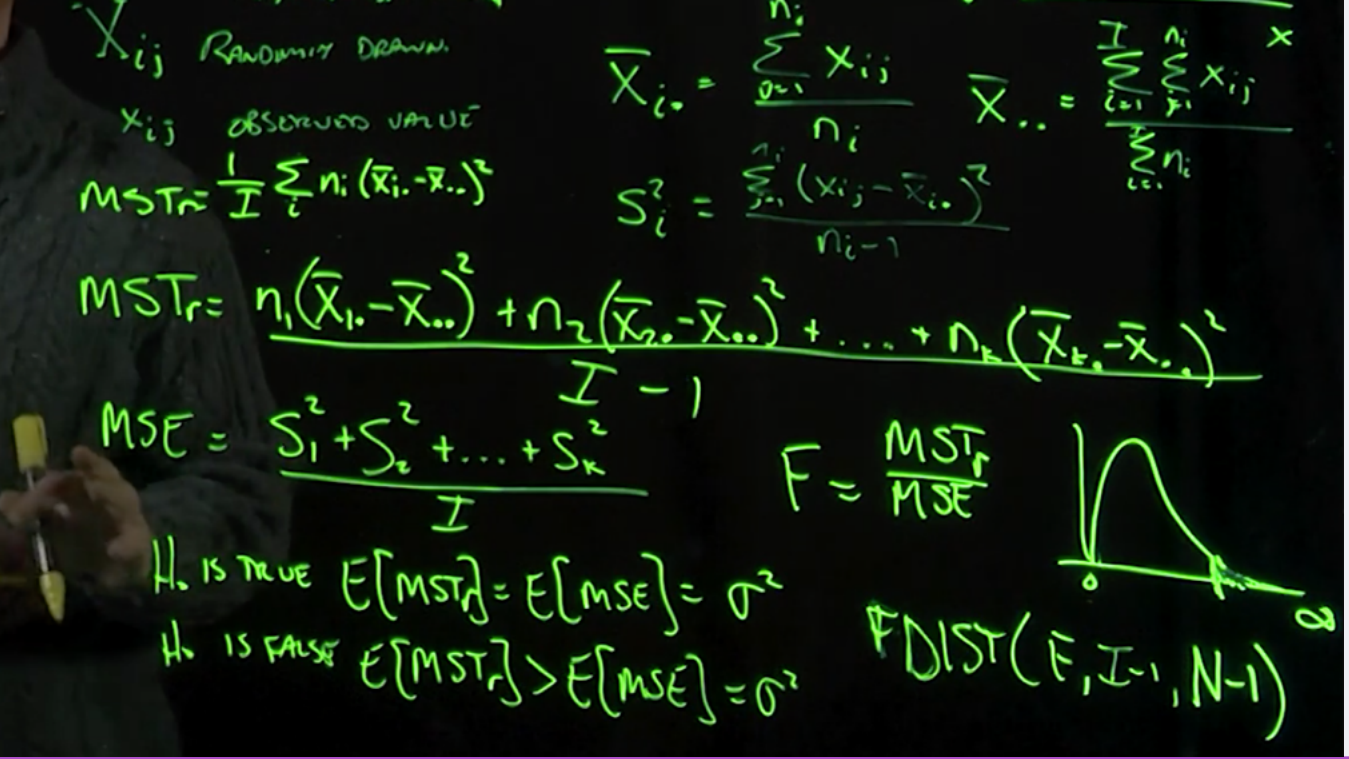 X_ij RANDOMLY DRAWN.
x_ij OBSERVED VALUE
X̄_i. = Σ_{j=1}^{n_i} x_ij / n_i
X̄.. = Σ_{i=1}^{I} Σ_{j=1}^{n_i} x_ij / Σ_{i=1}^{I} n_i
x
MSTr = 1/I Σ_i n_i (x̄_i. - x̄..)²
S_i² = Σ_{j=1}^{n_i} (x_ij - x̄_i.)² / n_i - 1
MSTr = n_1(X̄_1. - X̄..)² + n_2(X̄_2. - X̄..)² + .... + n_k(X̄_k. - X̄..)² / I - 1
MSE = S_1² + S_2² + ... + S_k² / I
F = MSTr / MSE
0 ∞
H₀ IS TRUE E[MSTr] = E[MSE] = σ²
H₀ IS FALSE E[MSTr] > E[MSE] = σ²
FDIST(F, I-1, N-1)